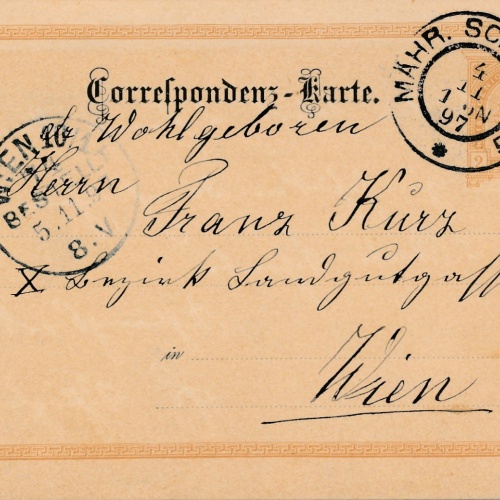 Correspondenz-Karte.
MÄHR. SC
4
11
1 N
97
Wohlgeboren
WIEN 10
BESTELLT
5.11.9
8.V
Herrn
Franz Kurz
X Bezirk Landgutgass
in Wien
2